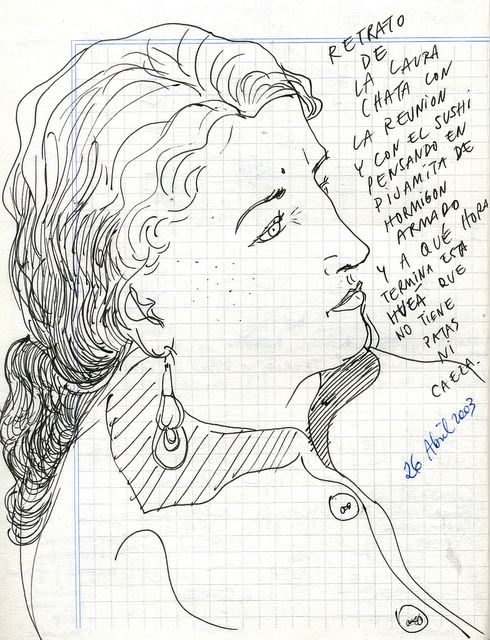 RETRATO
DE
LA LAURA
CHATA CON
LA REUNION
Y CON EL SUSHI
PENSANDO EN
PIJAMITA DE
HORMIGON
ARMADO
Y A QUÉ HORA
TERMINA ESTA
HUEÁ QUE
NO TIENE
PATAS
NI
CAEZA.
26 Abril 2003